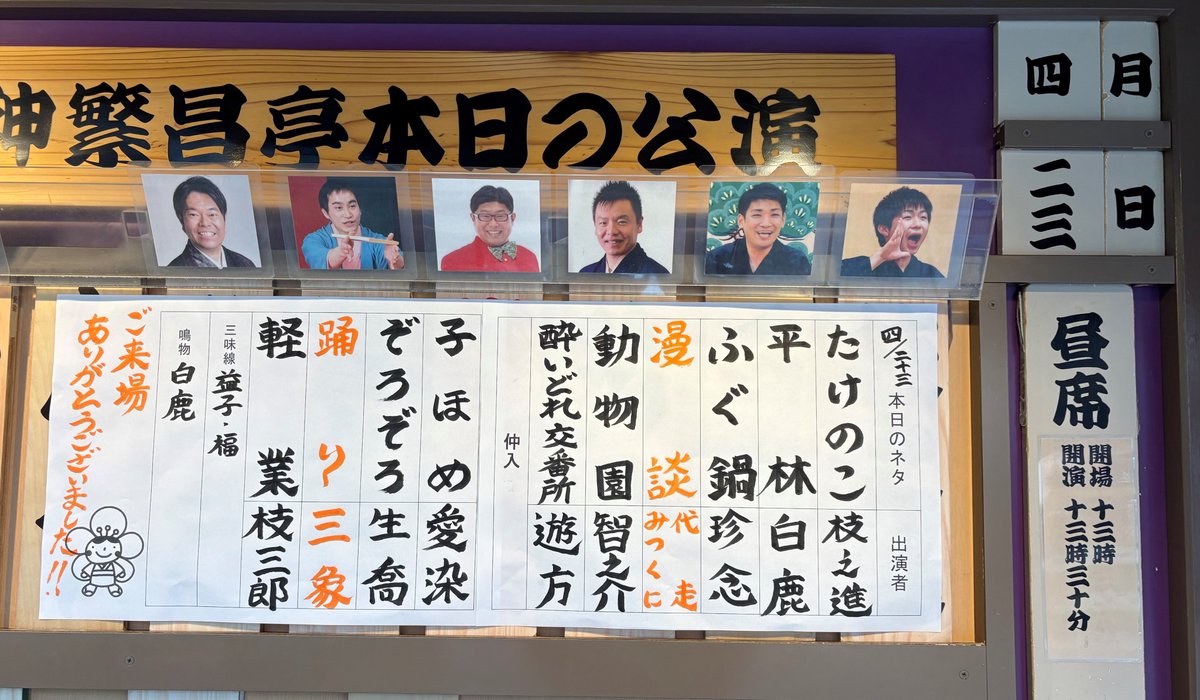 神繁昌亭本日の公演
四月
二三日
昼席
開場 十三時
開演 十三時三十分
四/二十三 本日のネタ 出演者
たけのこ 枝之進
平林 白鹿
ふぐ鍋 珍念
漫談 代走みつくに
動物園 智之介
酔いどれ交番所 遊方
仲入
子ほめ 愛染
ぞろぞろ 生喬
踊り 三象
軽業 枝三郎
三味線 益子・福
鳴物 白鹿
ご来場
ありがとうございました!!